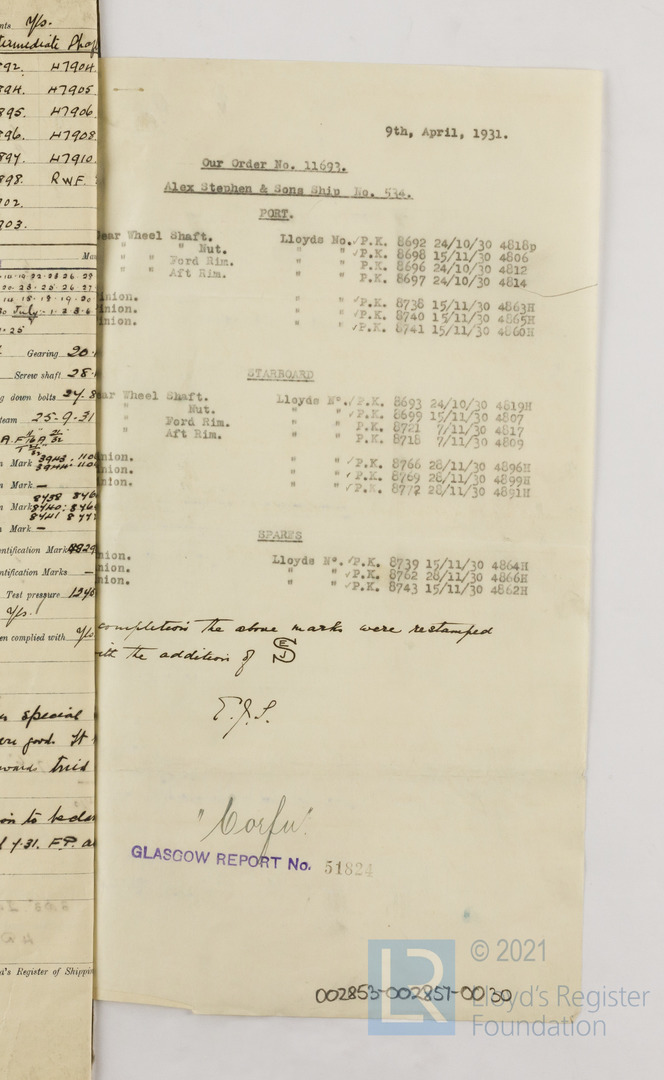 nts y/s.
termediate Shaf
892. H7904
894. H7905
895. H7906
896. H7908
897. H7910
898. RWF
902.
903.
Gearing 20.
Screw shaft 28.
g down bolts 24.8
team 25-9-31
n Mark 3943. 110
3944. 110
n Mark —
8738 876
n Mark 8740: 876
8741 877
n Mark —
entification Mark 4829
ntification Marks —
Test pressure 124
y/s.
en complied with y/s
special
ere good. It
wards tried
on to be
4.31. F.P. a
d's Register of Shippin
9th, April, 1931.
Our Order No. 11693.
Alex Stephen & Sons Ship No. 534.
PORT.
ear Wheel Shaft. Lloyds No. ✓P.K. 8692 24/10/30 4818p
" " Nut. " " ✓P.K. 8698 15/11/30 4806
" " Ford Rim. " " P.K. 8696 24/10/30 4812
" " Aft Rim. " " P.K. 8697 24/10/30 4814
inion. " " ✓P.K. 8738 15/11/30 4863H
inion. " " ✓P.K. 8740 15/11/30 4865H
inion. " " ✓P.K. 8741 15/11/30 4860H
STARBOARD
ear Wheel Shaft. Lloyds No. ✓P.K. 8693 24/10/30 4819H
" Nut. " " ✓P.K. 8699 15/11/30 4807
" Ford Rim. " " P.K. 8721 7/11/30 4817
" Aft Rim. " " P.K. 8718 7/11/30 4809
inion. " " ✓P.K. 8766 28/11/30 4896H
inion. " " ✓P.K. 8769 28/11/30 4899H
inion. " " ✓P.K. 8772 28/11/30 4891H
SPARES
inion. Lloyds No. ✓P.K. 8739 15/11/30 4864H
inion. " " ✓P.K. 8762 28/11/30 4866H
inion. " " ✓P.K. 8743 15/11/30 4862H
completion the above marks were restamped
ith the addition of
E.J.S.
"Corfu".
GLASGOW REPORT No. 51824
LR © 2021
Lloyd's Register
Foundation
002853-002857-0030